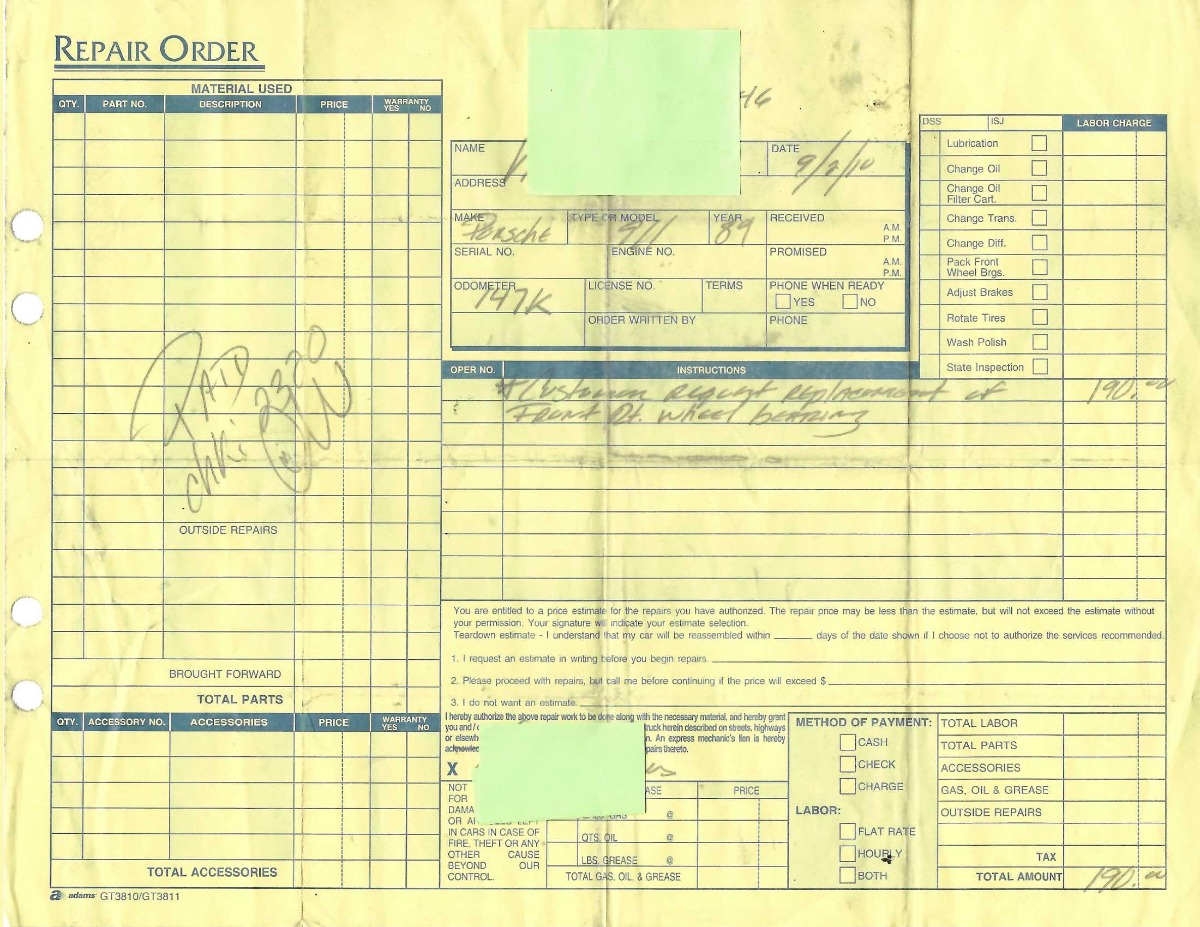 REPAIR ORDER
MATERIAL USED
QTY. PART NO. DESCRIPTION PRICE WARRANTY YES NO
46
NAME DATE 9/2/10
ADDRESS
MAKE Porsche TYPE OR MODEL 911 YEAR 89 RECEIVED A.M. P.M.
SERIAL NO. ENGINE NO. PROMISED A.M. P.M.
ODOMETER 147K LICENSE NO. TERMS PHONE WHEN READY YES NO
ORDER WRITTEN BY PHONE
DSS ISJ LABOR CHARGE
Lubrication
Change Oil
Change Oil
Filter Cart.
Change Trans.
Change Diff.
Pack Front
Wheel Brgs.
Adjust Brakes
Rotate Tires
Wash Polish
State Inspection
OPER NO. INSTRUCTIONS
* Customer Request Replacement of 190.00
Front Rt. Wheel bearing
PAID
chk: 2320
OUTSIDE REPAIRS
BROUGHT FORWARD
TOTAL PARTS
You are entitled to a price estimate for the repairs you have authorized. The repair price may be less than the estimate, but will not exceed the estimate without
your permission. Your signature will indicate your estimate selection.
Teardown estimate - I understand that my car will be reassembled within ______ days of the date shown if I choose not to authorize the services recommended.
1. I request an estimate in writing before you begin repairs.
2. Please proceed with repairs, but call me before continuing if the price will exceed $
3. I do not want an estimate.
QTY. ACCESSORY NO. ACCESSORIES PRICE WARRANTY YES NO
TOTAL ACCESSORIES
I hereby authorize the above repair work to be done along with the necessary material, and hereby grant
you and / truck herein described on streets, highways
or elsewh n. An express mechanic's lien is hereby
acknowled pairs thereto.
X
NOT
FOR
DAMA
OR
IN CARS IN CASE OF
FIRE, THEFT OR ANY
OTHER CAUSE
BEYOND OUR
CONTROL.
ASE PRICE
GAS @
QTS. OIL @
LBS. GREASE @
TOTAL GAS, OIL, & GREASE
METHOD OF PAYMENT:
CASH
CHECK
CHARGE
LABOR:
FLAT RATE
HOURLY
BOTH
TOTAL LABOR
TOTAL PARTS
ACCESSORIES
GAS, OIL & GREASE
OUTSIDE REPAIRS
TAX
TOTAL AMOUNT 190.00
a adams GT3810/GT3811